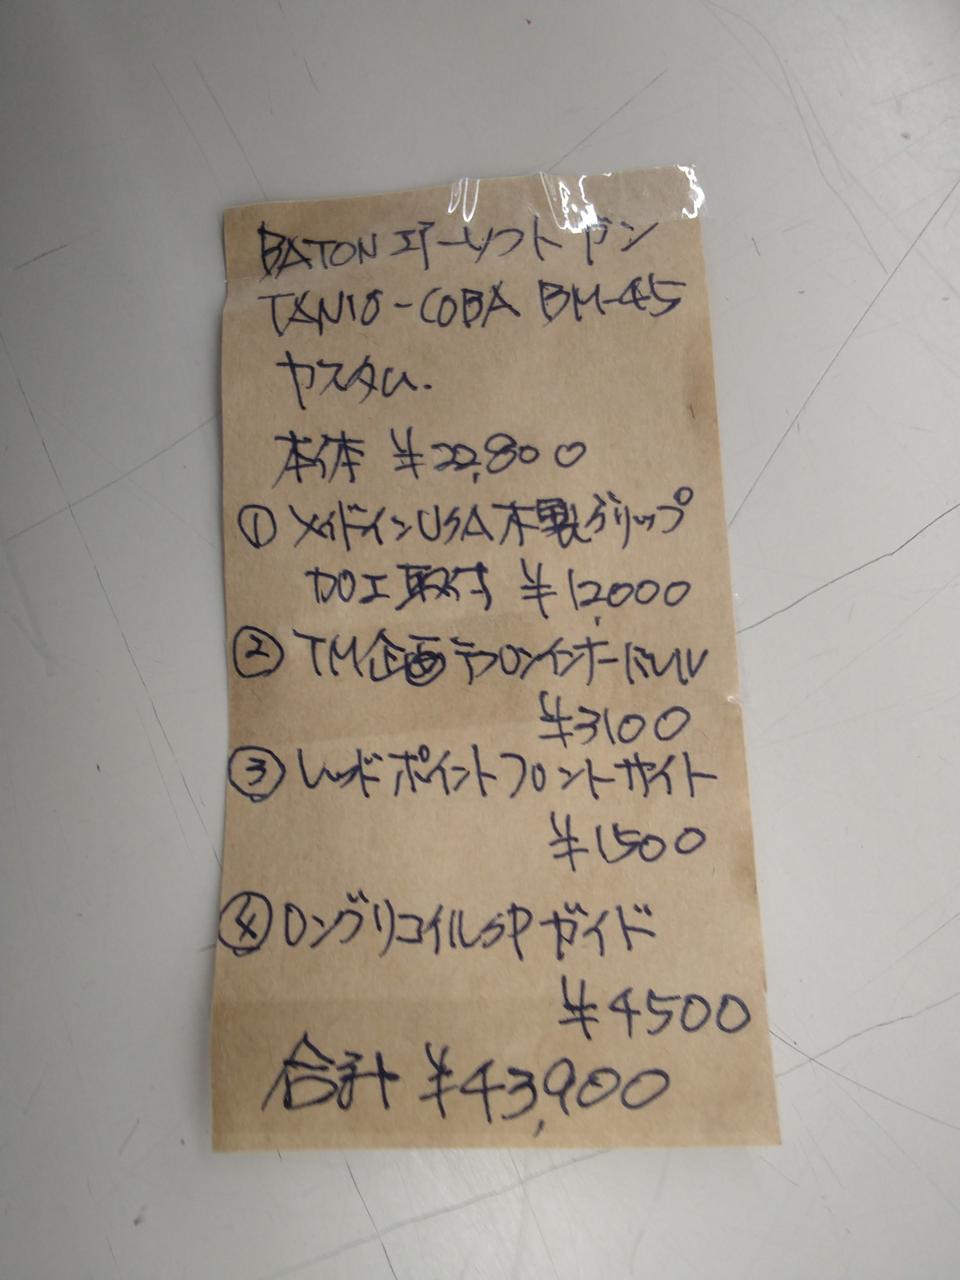 BATONエアーソフトガン
TANIO-COBA BM-45
カスタム.
本体 ¥22,800
① メイドインUSA木製グリップ
加工取付 ¥12,000
② TM企画テフロンインナーバレル
¥3100
③ レッドポイントフロントサイト
¥1500
④ ロングリコイルSPガイド
¥4500
合計 ¥43,900